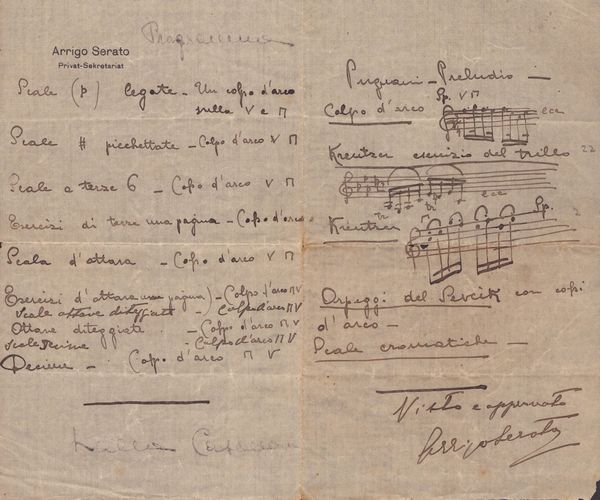 Programma
Arrigo Serato
Privat-Sekretariat
Scale (p) legate - Un colpo d'arco
sulla V e Π
Scale # picchettate - Colpo d'arco V Π
Scale a terze 6 - Colpo d'arco V Π
Esercizi di terze una pagina - Colpo d'arco
Scala d'ottava - Colpo d'arco V Π
Esercizi d'ottava una pagina) - Colpo d'arco Π V
Scale ottave diteggiate - Colpo d'arco Π V
Ottave diteggiate . - Colpo d'arco Π V
Scale decime - Colpo d'arco Π V
Decime - Colpo d'arco Π V
Pugnani - Preludio -
Sp. V Π
Colpo d'arco ecc
Kreutzer esercizio del trillo 22
tr tr ecc
Kreutzer Π Sp. 2
Arpeggi del Sevcik con colpi
d'arco -
Scale cromatiche -
Visto e approvato
Arrigo Serato